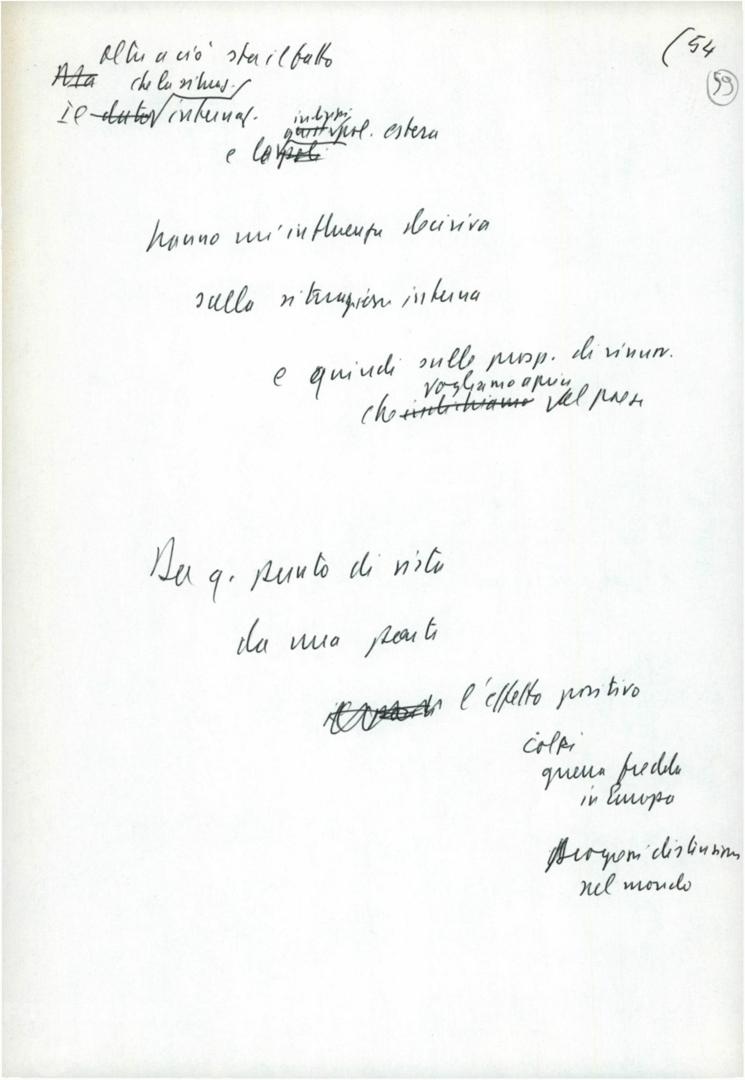 (54
59
Oltre a ciò sta il fatto
Ma che la situaz.
Il dato internaz.
pol. estera
e la poli
hanno un'influenza decisiva
sulla situazione interna
e quindi sulle prosp. di rinnov.
vogliamo aprire
che nel paese
Da q. punto di vista
da una parte
l'effetto positivo
colpi
guerra fredda
in Europa
progressi distensione
nel mondo